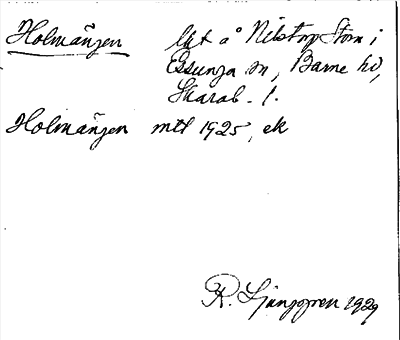 Holmängen lht å Nilstorp Stom i
Essunga sn, Barne hd,
Skarab. l.
Holmängen mtl 1925, ek
R. Ljunggren 1929